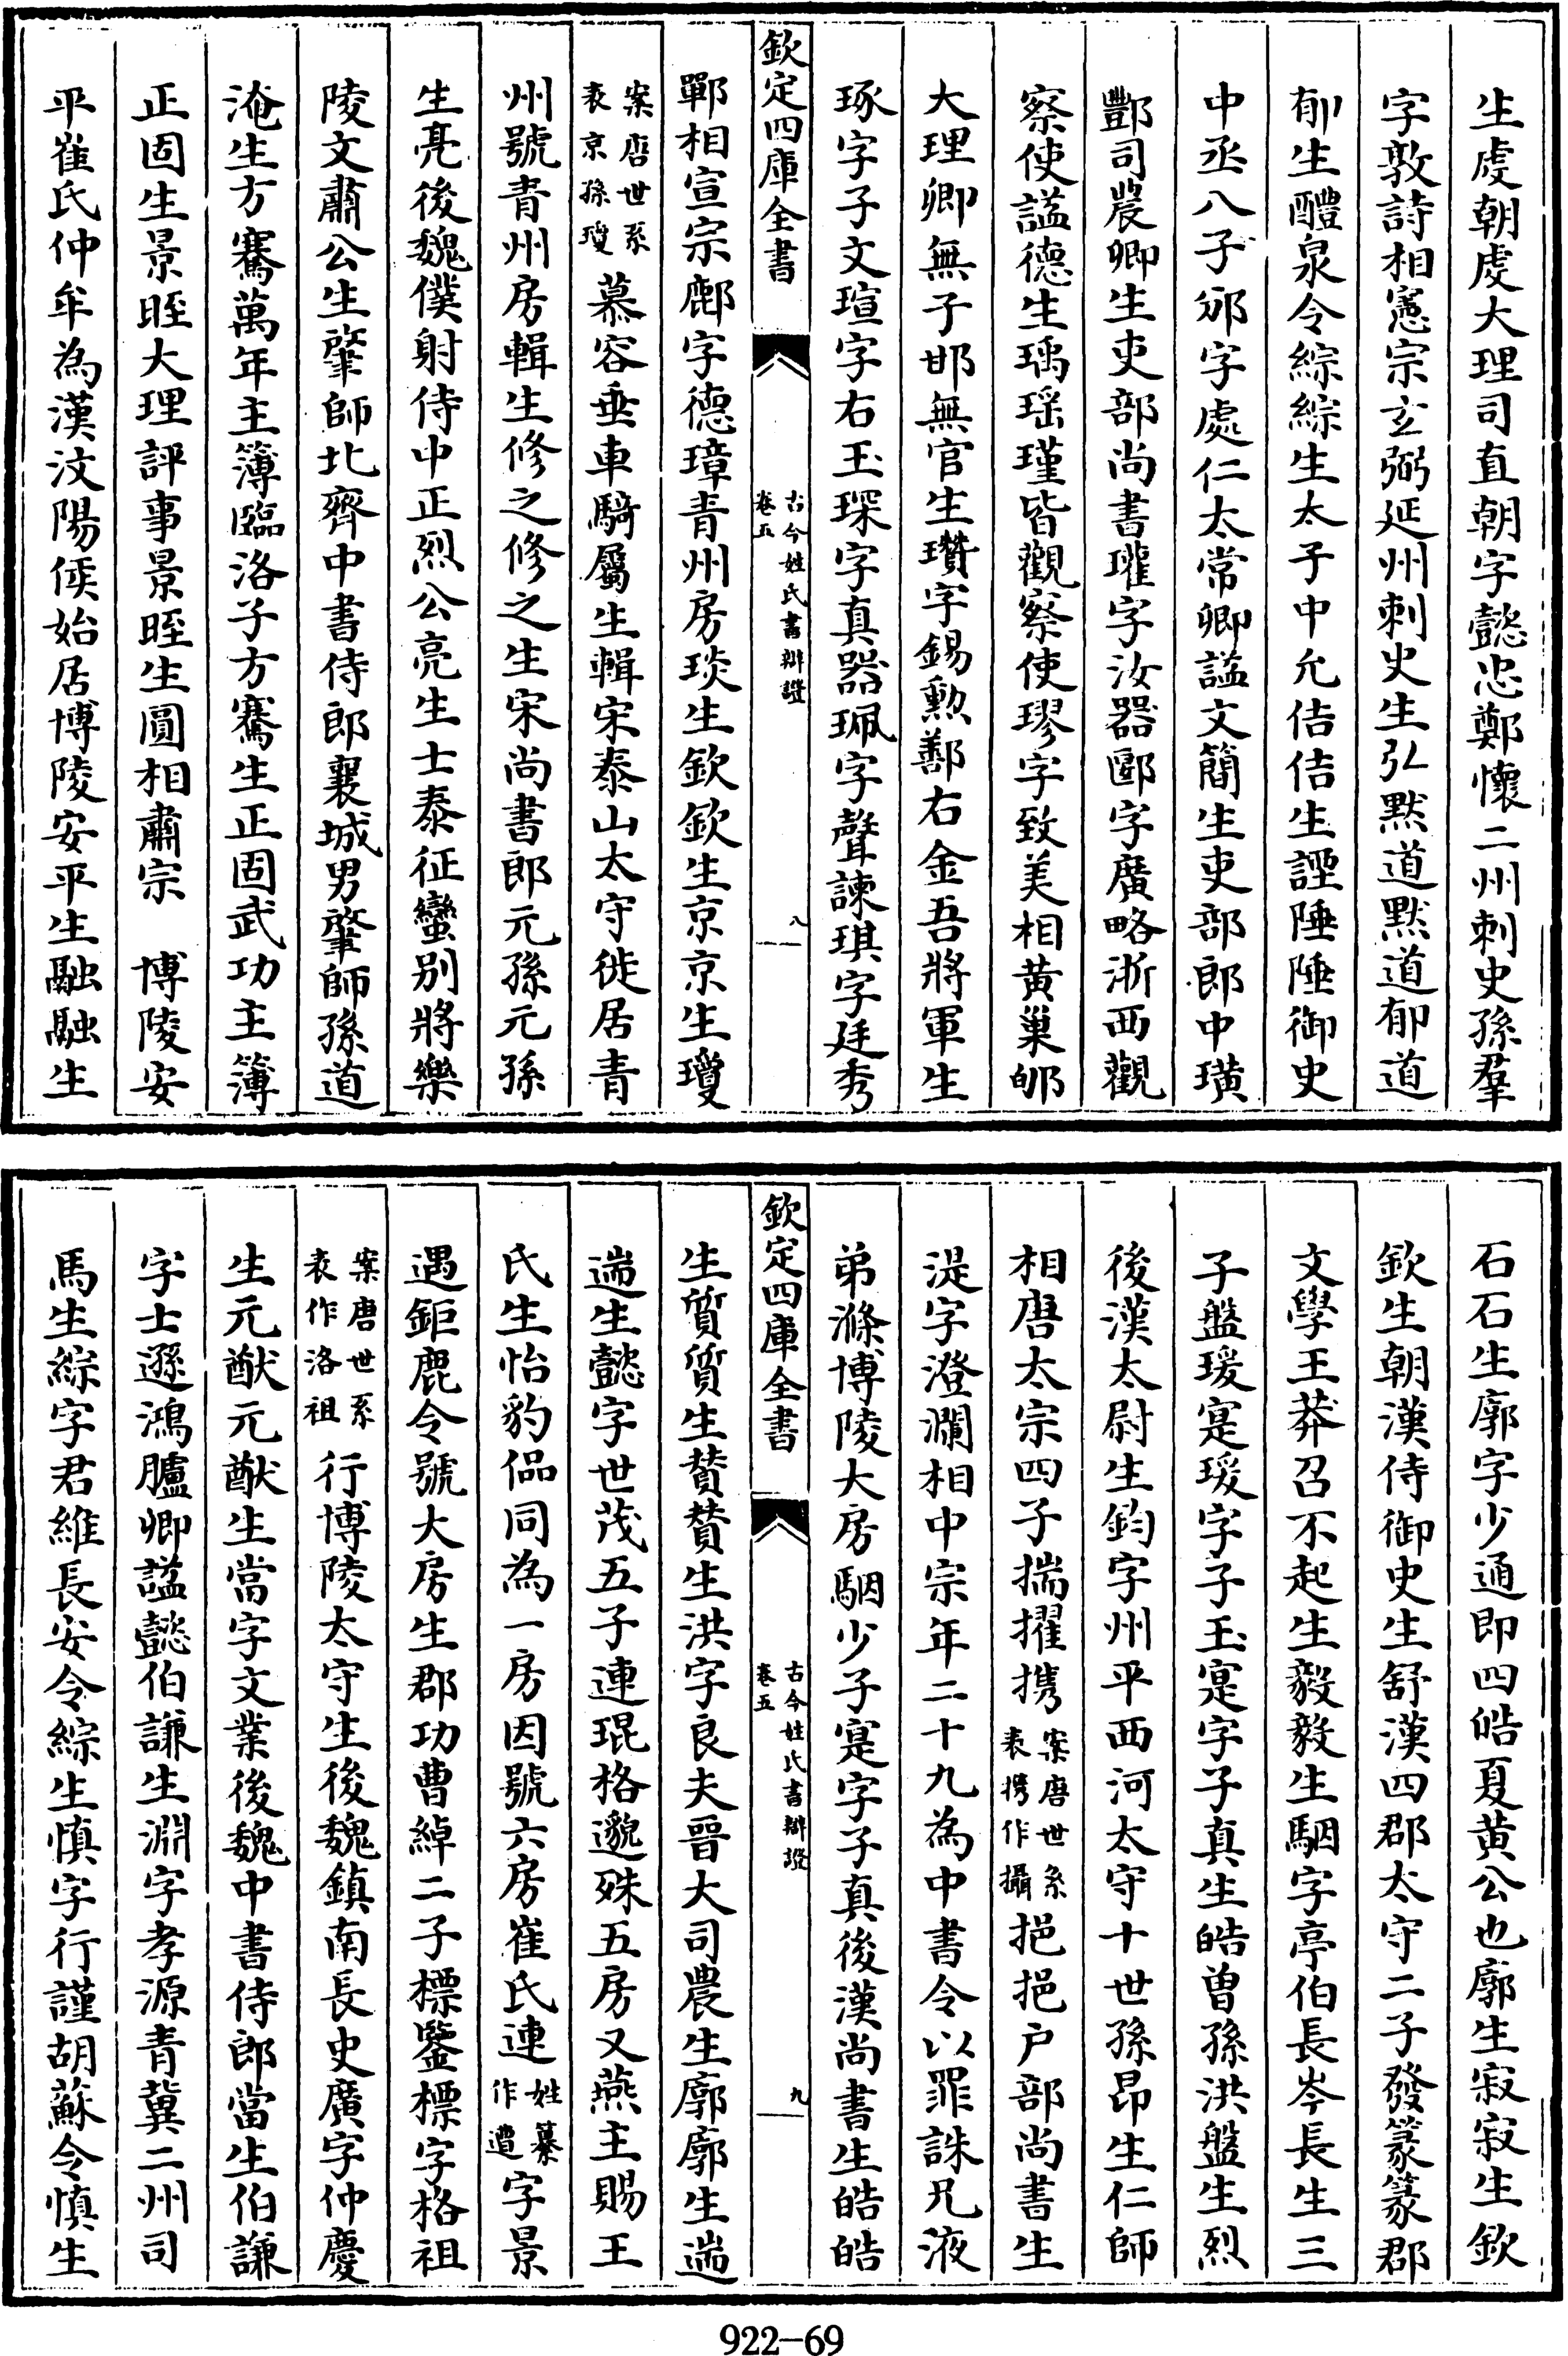 生虔朝虔大理司直朝字懿忠鄭懷二州刺史孫羣
字敦詩相憲宗玄弼延州刺史生弘黙道黙道郁道
郁生醴泉令綜綜生太子中允佶佶生諲陲陲御史
中丞八子邠字處仁太常卿謚文簡生吏部郎中璜
酆司農卿生吏部尚書瓘字汝器郾字廣略浙西觀
察使謚德生瑀瑶瑾皆觀察使璆字致美相黄巢郇
大理卿無子邯無官生瓚字錫勲鄯右金吾將軍生
琢字子文瑄字右玉琛字真器珮字聲諫琪字廷秀
欽定四庫全書
古今姓氏書辯證
卷五
八
鄲相宣宗鄜字德璋青州房琰生欽欽生京京生瓊
案唐世系
表京孫瓊
慕容垂車騎屬生輯宋泰山太守徙居青
州號青州房輯生修之修之生宋尚書郎元孫元孫
生亮後魏僕射侍中正烈公亮生士泰征蠻别將樂
陵文肅公生肇師北齊中書侍郎襄城男肇師孫道
淹生方騫萬年主簿臨洛子方騫生正固武功主簿
正固生景晊大理評事景晊生圓相肅宗　博陵安
平崔氏仲牟為漢汶陽侯始居博陵安平生融融生
石石生廓字少通即四皓夏黄公也廓生寂寂生欽
欽生朝漢侍御史生舒漢四郡太守二子發篆篆郡
文學王莽召不起生毅毅生駰字亭伯長岑長生三
子盤瑗寔瑗字子玉寔字子真生皓曽孫洪盤生烈
後漢太尉生鈞字州平西河太守十世孫昻生仁師
相唐太宗四子揣擢攜
案唐世系
表攜作攝
挹挹户部尚書生
湜字澄瀾相中宗年二十九為中書令以罪誅凡液
弟滌博陵大房駰少子寔字子真後漢尚書生皓皓
欽定四庫全書
古今姓氏書辯證
卷五
九
生質質生賛賛生洪字良夫晉大司農生廓廓生遄
遄生懿字世茂五子連琨格邈殊五房又燕主賜王
氏生怡豹侃同為一房因號六房崔氏連
姓纂
作遭
字景
遇鉅鹿令號大房生郡功曹綽二子標鑒標字格祖
案唐世系
表作洛祖
行博陵太守生後魏鎮南長史廣字仲慶
生元猷元猷生當字文業後魏中書侍郎當生伯謙
字士遜鴻臚卿謚懿伯謙生淵字孝源青冀二州司
馬生綜字君維長安令綜生慎字行謹胡蘇令慎生
922-69